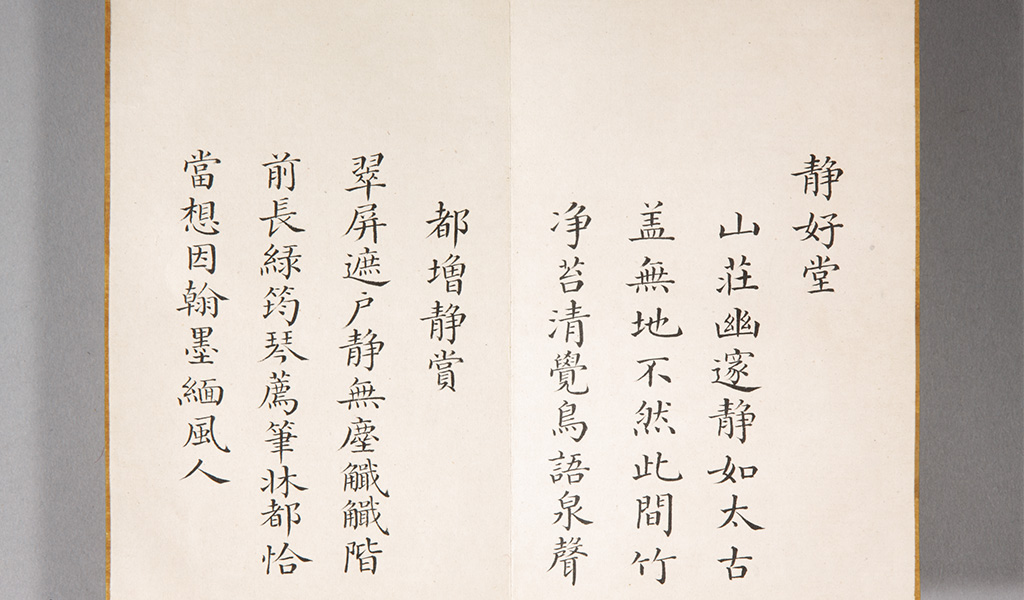 静好堂
山莊幽邃静如太古
盖無地不然此間竹
净苔清覺鳥語泉聲
都增静賞
翠屏遮户静無塵階
前長緑筠琴薦筆牀都恰
當想因翰墨緬風人